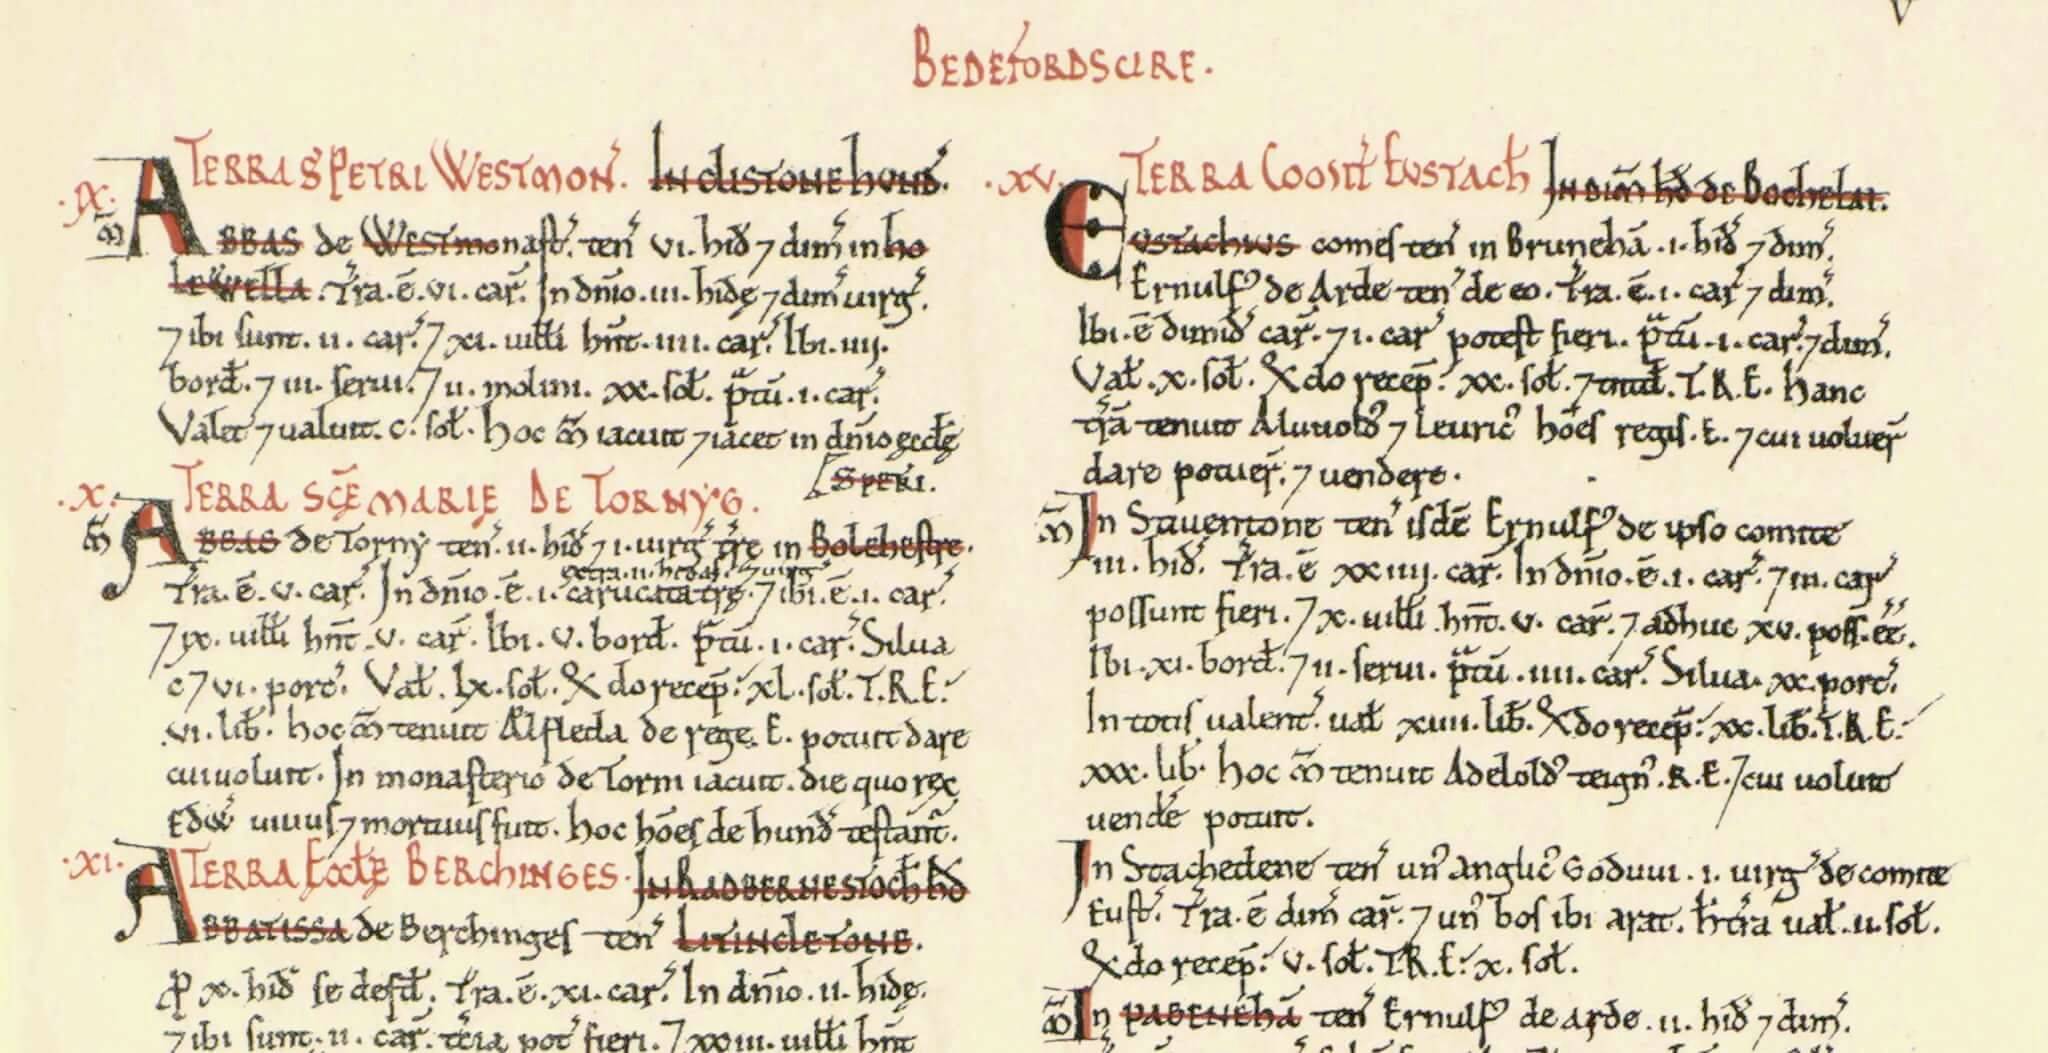 BEDEFORDSCIRE.
.IX. TERRA S PETRI WESTMON̄. IN CLISTONE HUND̄.
M̄ ABBAS de WESTmonast̄. ten̄ VI. hid̄ ⁊ dim̄ in ho
lewella. Tra. ē. VI. car̄. In dn̄io. III. hidę ⁊ dim̄ uirḡ.
⁊ ibi sunt. II. car̄. ⁊ XI. uiƚƚi hn̄t. IIII. car̄. Ibi. IIII.
bord̄. ⁊ III. serui. ⁊ II. molini. XX. soƚ. p̄tū. I. car̄.
Valet ⁊ ualuit. C. soƚ. Hoc m̄ iacuit ⁊ iacet in dn̄io ęccƚę
S PETRI.
.X. TERRA SC̄E MARIĘ DE TORNYG.
M̄ ABBAS de Torny ten̄. II. hid̄ ⁊ I. uirḡ tr̄ę in Bolehestre.
extra. II. hidas. ⁊ uirḡ
Tra. ē. V. car̄. In dn̄io. ē. I. carucata tr̄ę. ⁊ ibi. ē. I. car̄.
⁊ IX. uiƚƚi hn̄t. V. car̄. Ibi. V. bord̄. p̄tū. I. car̄. Silua
C ⁊ VI. porc̄. Vaƚ. LX. soƚ. & do recep̄: XL. soƚ. T.R.E:
VI. lib̄. hoc m̄ tenuit Ælfleda de rege. E. potuit dare
cui uoluit. In monasterio de Torni iacuit. die quo rex
Edw̄ uiuus ⁊ mortuus fuit. hoc hōes de hund̄ testant̄.
.XI. TERRA ECCƚĘ BERCHINGES. IN RADBERNESTOCH HD̄
ABBATISSA de Berchinges ten̄ LITINCLETONE.
ꝑ X. hid̄ se defd̄. Tra. ē. XI. car̄. In dn̄io. II. hidę.
⁊ ibi sunt. II. car̄. tcia pot̄ fieri. ⁊ XXIII. uiƚƚi hn̄t
.XV. TERRA COMIT̄ EUSTACH̄ IN DIM̄ hd̄ de Bochelai.
EUSTACHIUS comes ten̄ in Brunehā. I. hid̄ ⁊ dim̄.
Ernulf' de Arde ten̄ de eo. Tra. ē. I. car̄ ⁊ dim̄.
Ibi. ē dimid̄ car̄. ⁊ I. car̄ potest fieri. p̄tū. I. car̄. ⁊ dim̄.
Vaƚ. X. soƚ. & do recep̄: XX. soƚ. ⁊ tntd̄. T.R.E. Hanc
tr̄ā tenuit Aluuold' ⁊ Leuric' hōes regis. E. ⁊ cui uoluer̄
dare potuer̄. ⁊ uendere.
M̄ In Stauentone ten̄ isdē Ernulf' de ipso comite
III. hid̄. Tra. ē XXIIII. car̄. In dn̄io. ē. I. car̄. ⁊ III. car̄
possunt fieri. ⁊ X. uiƚƚi hn̄t. V. car̄. ⁊ adhuc XV. poss̄. eē.
Ibi. XI. bord̄. ⁊ II. serui. p̄tū. IIII. car̄. Silua. XX. porc̄.
In totis ualent̄. uaƚ XVIII. lib̄. & do recep̄: XX. lib̄. T.R.E:
XXX. lib̄. hoc m̄ tenuit Adelold' teign̄. R.E. ⁊ cui uoluit
uend̄e potuit.
In Stachedene ten̄ un' anglic' Goduui. I. uirḡ de comite
Eust̄. Tra. ē dim̄ car̄. ⁊ un' bos ibi arat. H tr̄a uaƚ. II. soƚ.
& do recep̄: V. soƚ. T.R.E: X. soƚ.
M̄ In PABENEHĀ ten̄ Ernulf' de arde. II. hid̄ ⁊ dim̄.